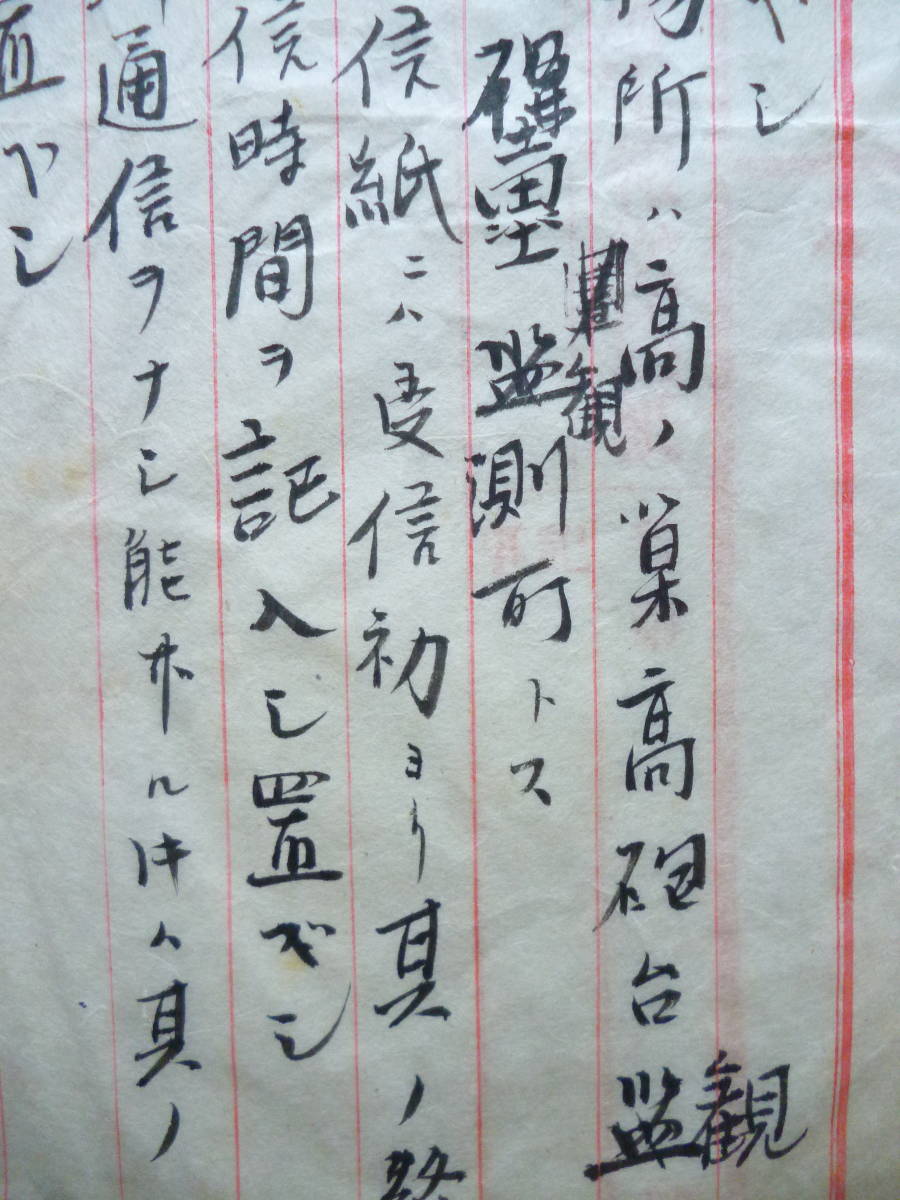 シ
所ハ高ノ巣高砲台観
観測所トス
信紙ニハ受信初ヨリ其ノ終
信時間ヲ記入シ置ベシ
通信ヲナシ能ザル件ハ其ノ
置ベシ